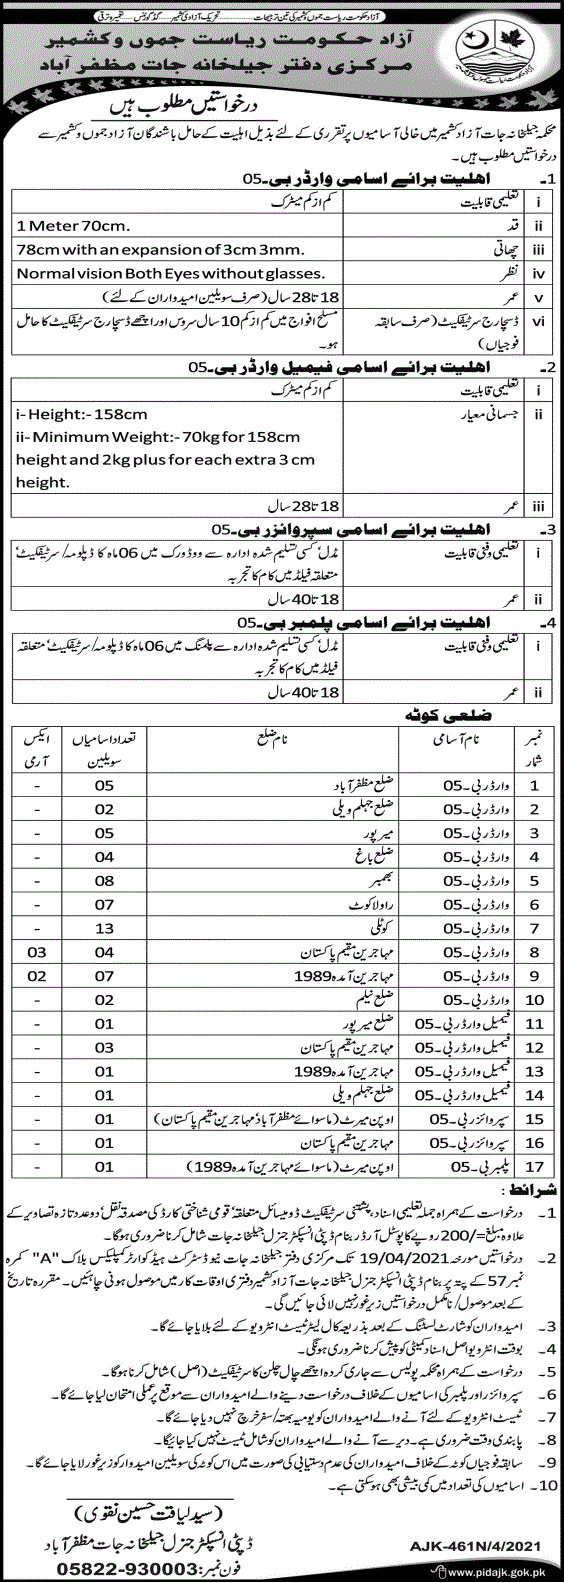 آزاد حکومت ریاست جموں و کشمیر کی تین ترجیحات ـــ تحریک آزادی کشمیر ـ گڈ گورننس ـ تعمیر و ترقی
آزاد حکومت ریاست جموں و کشمیر
مرکزی دفتر جیلخانہ جات مظفر آباد
درخواستیں مطلوب ہیں
محکمہ جیلخانہ جات آزاد کشمیر میں خالی آسامیوں پر تقرری کے لئے بذیل اہلیت کے حامل باشندگان آزاد جموں و کشمیر سے
درخواستیں مطلوب ہیں۔
1۔ اہلیت برائے اسامی وارڈر بی۔05
i تعلیمی قابلیت کم از کم میٹرک
ii قد 1 Meter 70cm.
iii چھاتی 78cm with an expansion of 3cm 3mm.
iv نظر Normal vision Both Eyes without glasses.
v عمر 18 تا 28 سال (صرف سویلین امیدواران کے لئے)
vi ڈسچارج سرٹیفکیٹ (صرف سابقہ مسلح افواج میں کم از کم 10 سال سروس اور اچھے ڈسچارج سرٹیفکیٹ کا حامل
فوجیاں) ہو۔
2۔ اہلیت برائے اسامی فیمیل وارڈر بی۔05
i تعلیمی قابلیت کم از کم میٹرک
ii جسمانی معیار i- Height:- 158cm
ii- Minimum Weight:- 70kg for 158cm
height and 2kg plus for each extra 3 cm
height.
iii عمر 18 تا 28 سال
3۔ اہلیت برائے اسامی سپروائزر بی۔05
i تعلیمی و فنی قابلیت مڈل، کسی تسلیم شدہ ادارہ سے ووڈ ورک میں 06 ماہ کا ڈپلومہ/سرٹیفکیٹ،
متعلقہ فیلڈ میں کام کا تجربہ
ii عمر 18 تا 40 سال
4۔ اہلیت برائے اسامی پلمبر بی۔05
i تعلیمی و فنی قابلیت مڈل، کسی تسلیم شدہ ادارہ سے پلمبنگ میں 06 ماہ کا ڈپلومہ/سرٹیفکیٹ، متعلقہ
فیلڈ میں کام کا تجربہ
ii عمر 18 تا 40 سال
ضلعی کوٹہ
نمبر نام آسامی نام ضلع تعداد اسامیاں ایکس
شمار سویلین آرمی
1 وارڈر بی۔05 ضلع مظفرآباد 05 -
2 وارڈر بی۔05 ضلع جہلم ویلی 02 -
3 وارڈر بی۔05 میرپور 05 -
4 وارڈر بی۔05 ضلع باغ 04 -
5 وارڈر بی۔05 بھمبر 08 -
6 وارڈر بی۔05 راولاکوٹ 07 -
7 وارڈر بی۔05 کوٹلی 13 -
8 وارڈر بی۔05 مہاجرین مقیم پاکستان 04 03
9 وارڈر بی۔05 مہاجرین آمدہ 1989 07 02
10 وارڈر بی۔05 ضلع نیلم 02 -
11 فیمیل وارڈر بی۔05 ضلع میرپور 01 -
12 فیمیل وارڈر بی۔05 مہاجرین مقیم پاکستان 03 -
13 فیمیل وارڈر بی۔05 مہاجرین آمدہ 1989 01 -
14 فیمیل وارڈر بی۔05 ضلع جہلم ویلی 01 -
15 سپروائزر بی۔05 اوپن میرٹ (ماسوائے مظفرآباد، مہاجرین مقیم پاکستان) 01 -
16 سپروائزر بی۔05 مہاجرین مقیم پاکستان 01 -
17 پلمبر بی۔05 اوپن میرٹ (ماسوائے مہاجرین آمدہ 1989) 01 -
شرائط:
1۔ درخواست کے ہمراہ جملہ تعلیمی اسناد، پشتنی سرٹیفکیٹ، ڈومیسائل متعلقہ، قومی شناختی کارڈ کی مصدقہ نقل، دو عدد تازہ تصاویر کے
علاوہ مبلغ =/200 روپے کا پوسٹل آرڈر بنام ڈپٹی انسپکٹر جنرل جیلخانہ جات شامل کرنا ضروری ہوگا۔
2۔ درخواستیں مورخہ 19/04/2021 تک مرکزی دفتر جیلخانہ جات نیو ڈسٹرکٹ ہیڈ کوارٹر کمپلیکس بلاک "A" کمرہ
نمبر 57 کے پتہ پر بنام ڈپٹی انسپکٹر جنرل جیلخانہ جات آزاد کشمیر دفتری اوقات کار میں موصول ہونی چاہئیں۔ مقررہ تاریخ
کے بعد موصول/نامکمل درخواستیں زیر غور نہیں لائی جائیں گی۔
3۔ امیدواران کو شارٹ لسٹنگ کے بعد بذریعہ کال لیٹر ٹیسٹ انٹرویو کے لئے بلایا جائے گا۔
4۔ بوقت انٹرویو اصل اسناد کمیٹی کو پیش کرنا ضروری ہونگی۔
5۔ درخواست کے ہمراہ محکمہ پولیس سے جاری کردہ اچھے چال چلن کا سرٹیفکیٹ (اصل) شامل کرنا ہوگا۔
6۔ سپروائزر اور پلمبر کی اسامیوں کے خلاف درخواست دینے والے امیدواران سے موقع پر عملی امتحان لیا جائے گا۔
7۔ ٹیسٹ انٹرویو کے لئے آنے والے امیدواران کو یومیہ بھتہ/سفر خرچ نہیں دیا جائے گا۔
8۔ پابندی وقت ضروری ہے۔ دیر سے آنے والے امیدواران کو شامل ٹیسٹ نہیں کیا جائیگا۔
9۔ سابقہ فوجیاں کوٹہ کے خلاف امیدواران کی عدم دستیابی کی صورت میں اس کوٹہ کی سویلین امیدوار کو زیر غور لایا جائے گا۔
10۔ اسامیوں کی تعداد میں کمی بیشی بھی ہو سکتی ہے۔
(سید لیاقت حسین نقوی)
ڈپٹی انسپکٹر جنرل جیلخانہ جات مظفرآباد
فون نمبر: 05822-930003
AJK-461N/4/2021
www.pidajk.gok.pk